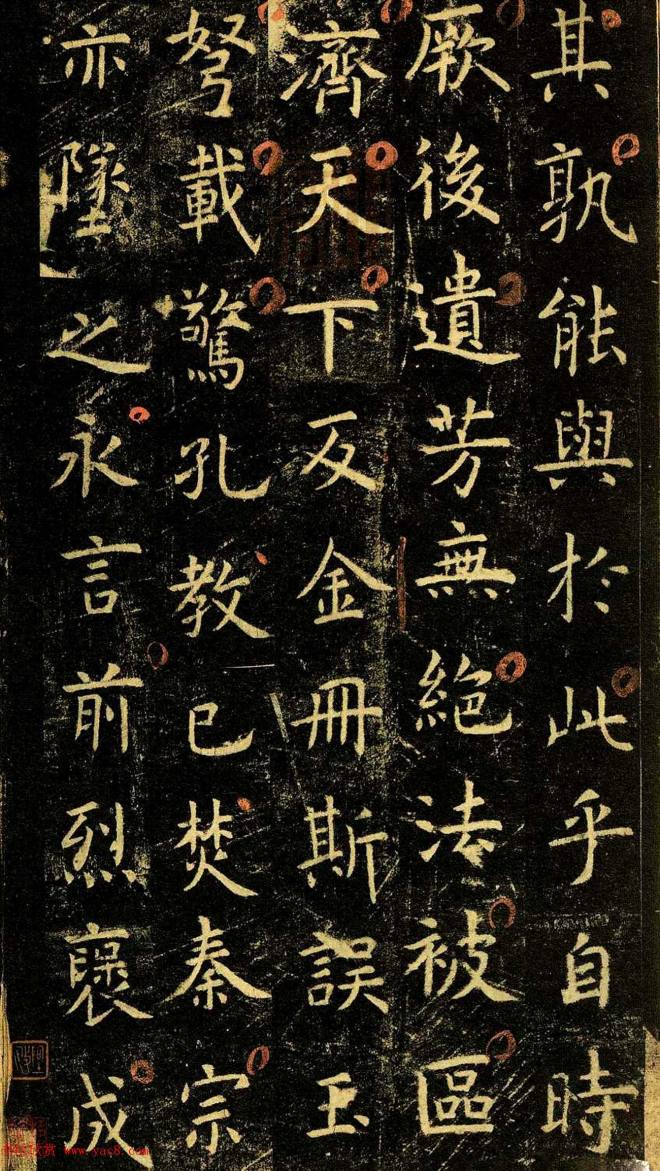 其孰能與於此乎自時
厥後遺芳無絕法被區
濟天下反金冊斯誤玉
弩載驚孔教已焚秦宗
亦墜之永言前烈褒成
www.yac8.com